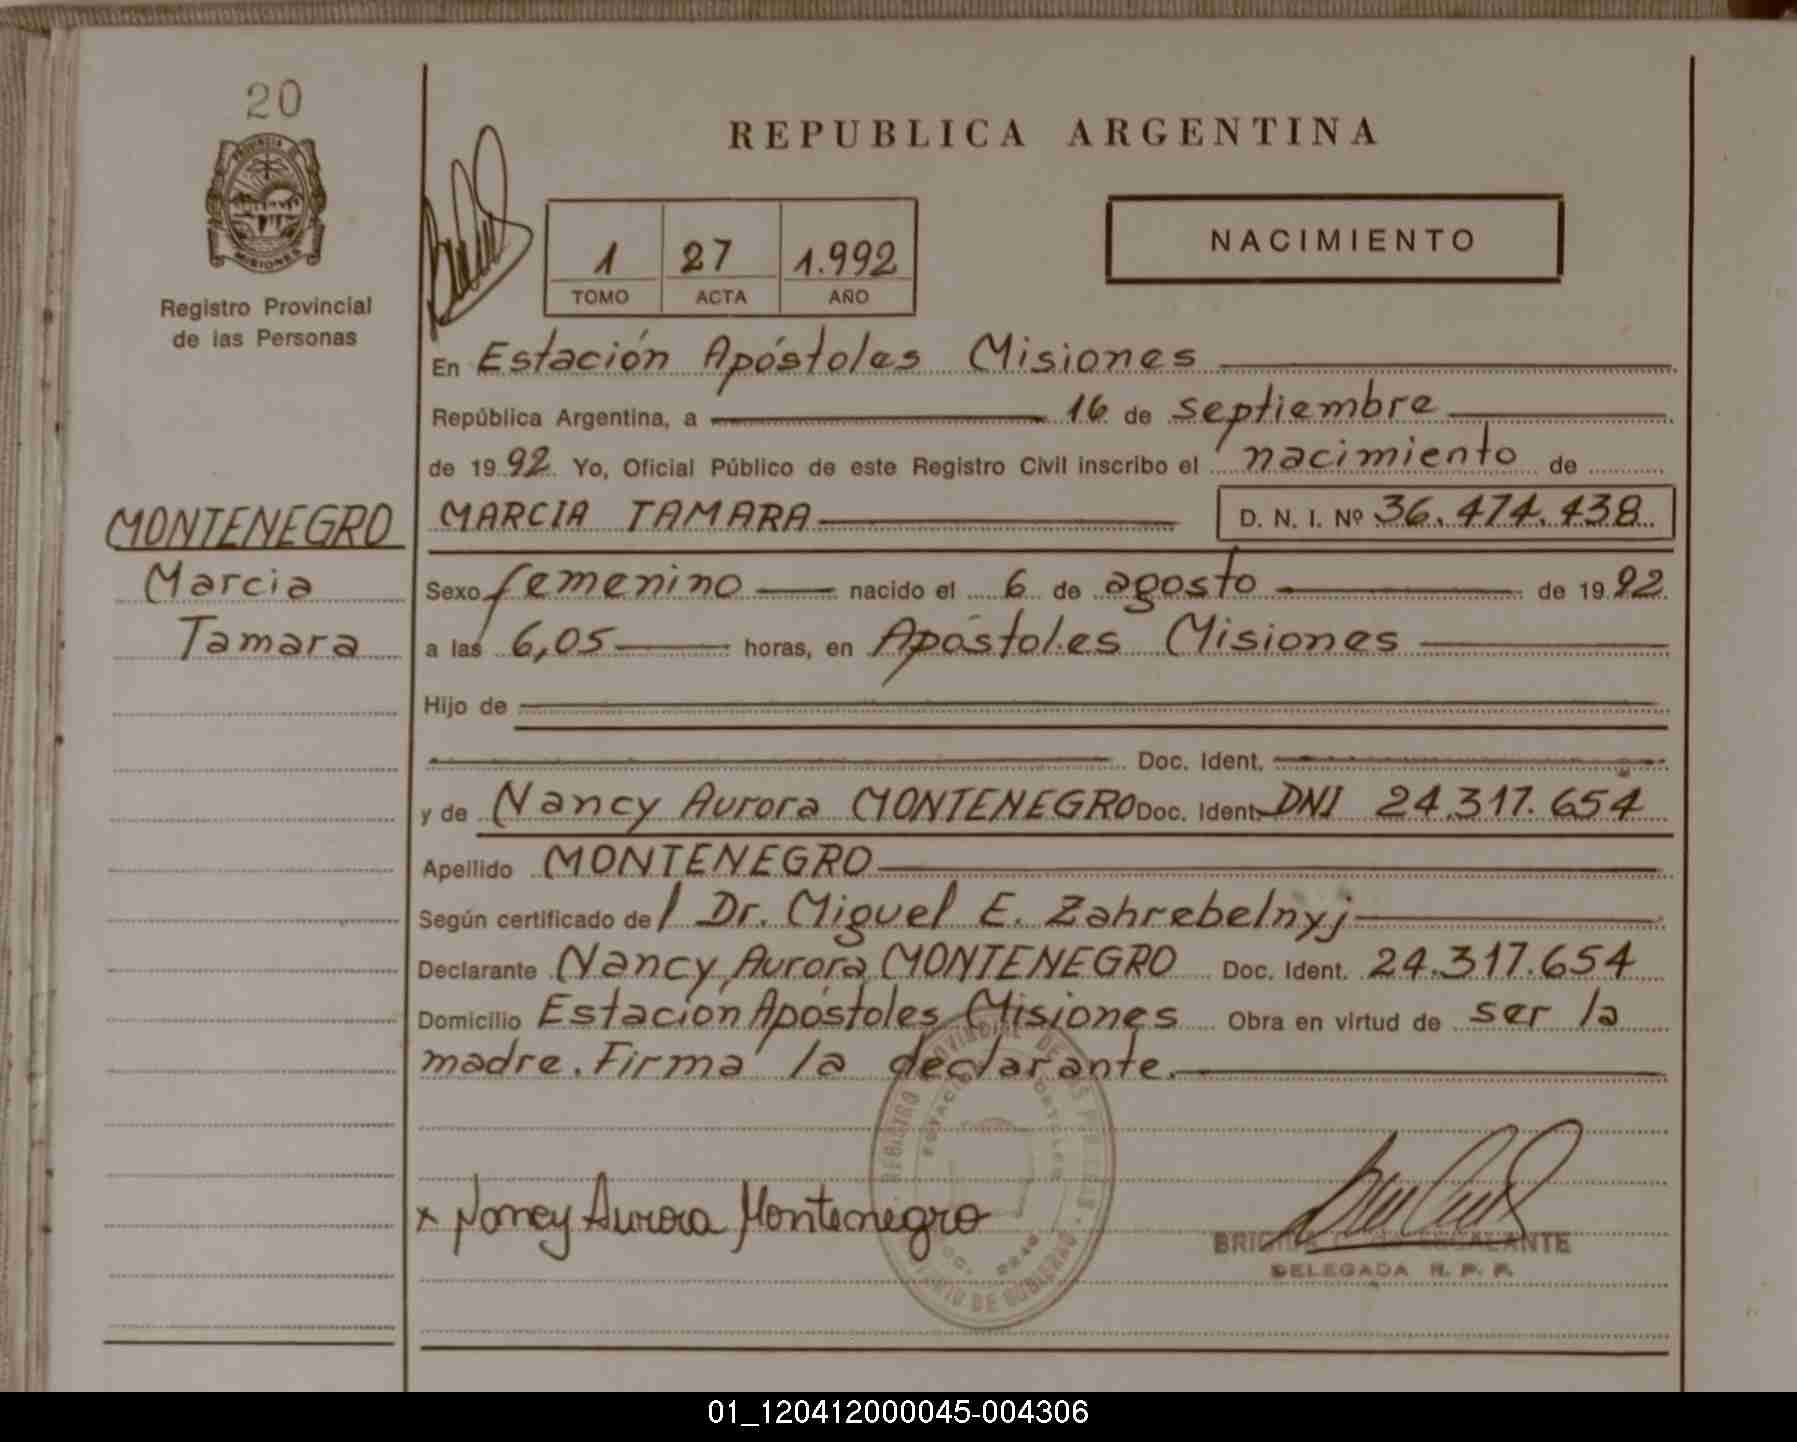 20
PROVINCIA
MISIONES
Registro Provincial
de las Personas
MONTENEGRO
Marcia
Tamara
REPUBLICA ARGENTINA
1 27 1.992
TOMO ACTA AÑO
NACIMIENTO
En Estación Apóstoles Misiones
República Argentina, a 16 de septiembre
de 1992 Yo, Oficial Público de este Registro Civil inscribo el nacimiento de
MARCIA TAMARA D. N. I. Nº 36.474.438
Sexo femenino nacido el 6 de agosto de 1992
a las 6,05 horas, en Apóstoles Misiones
Hijo de
Doc. Ident.
y de Nancy Aurora MONTENEGRO Doc. Ident. DNI 24.317.654
Apellido MONTENEGRO
Según certificado de l Dr. Miguel E. Zahrebelnyj
Declarante Nancy Aurora MONTENEGRO Doc. Ident. 24.317.654
Domicilio Estación Apóstoles Misiones Obra en virtud de ser la
madre. Firma la declarante.
x Nancy Aurora Montenegro
ESCALANTE
DELEGADA R. P. P.
01_120412000045-004306